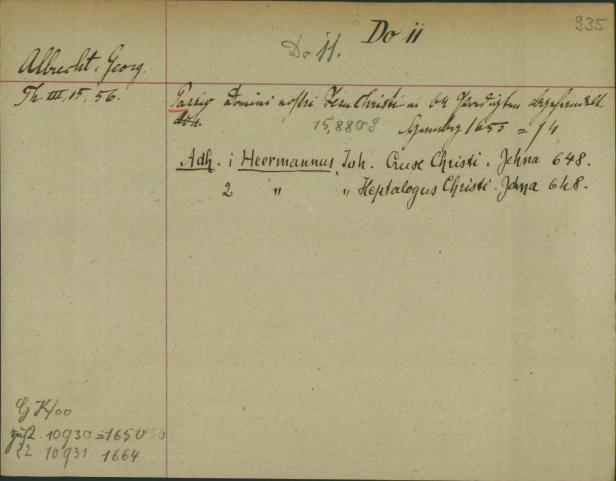 935
Do 11. Do 11
Albrecht, Georg.
Th. III, 15, 56.
Passio Domini nostri Jesu Christi in 64 Predigten abgehandelt
15,880 9 1653 = 74
Adh. 1 Heermannus, Joh. Crux Christi. Jehna 648.
2 " " Heptalogus Christi. Jehna 648.
G K/00
10930 = 1650
22 10931 1664